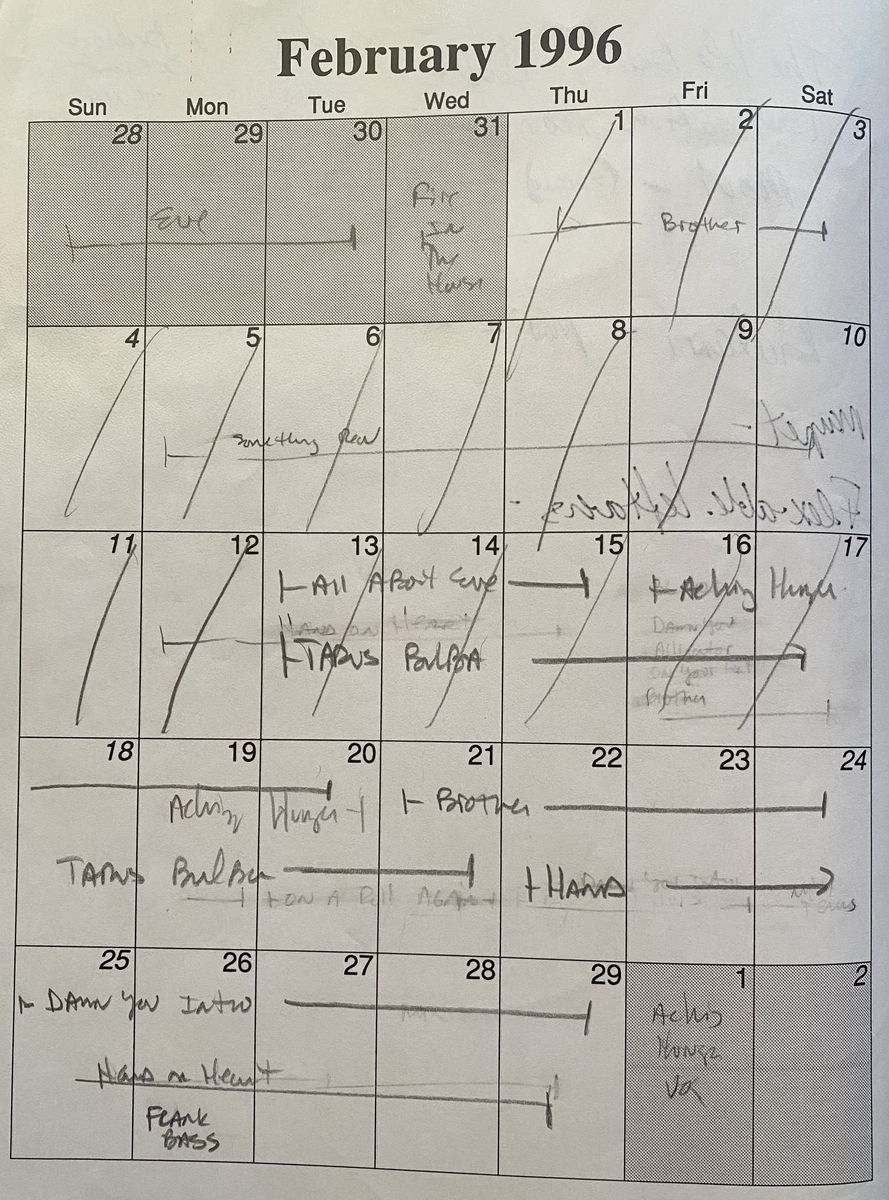 February 1996
Sun Mon Tue Wed Thu Fri Sat
28 29 30 31 1 2 3
Eve
Fire
In
The
House
Brother
4 5 6 7 8 9 10
Something Real
Flexable leftovers
11 12 13 14 15 16 17
All About Eve
Aching Hunger
Hand on Heart
TARUS BulBA
Damn You
Alligator
on your
Brother
18 19 20 21 22 23 24
Aching Hunger
Brother
TARUS BulBa
HAND
ON A Roll AGAIN
25 26 27 28 29 1 2
DAMN You Intro
Hand on Heart
FRANK
BASS
Aching
Hunge
Vox